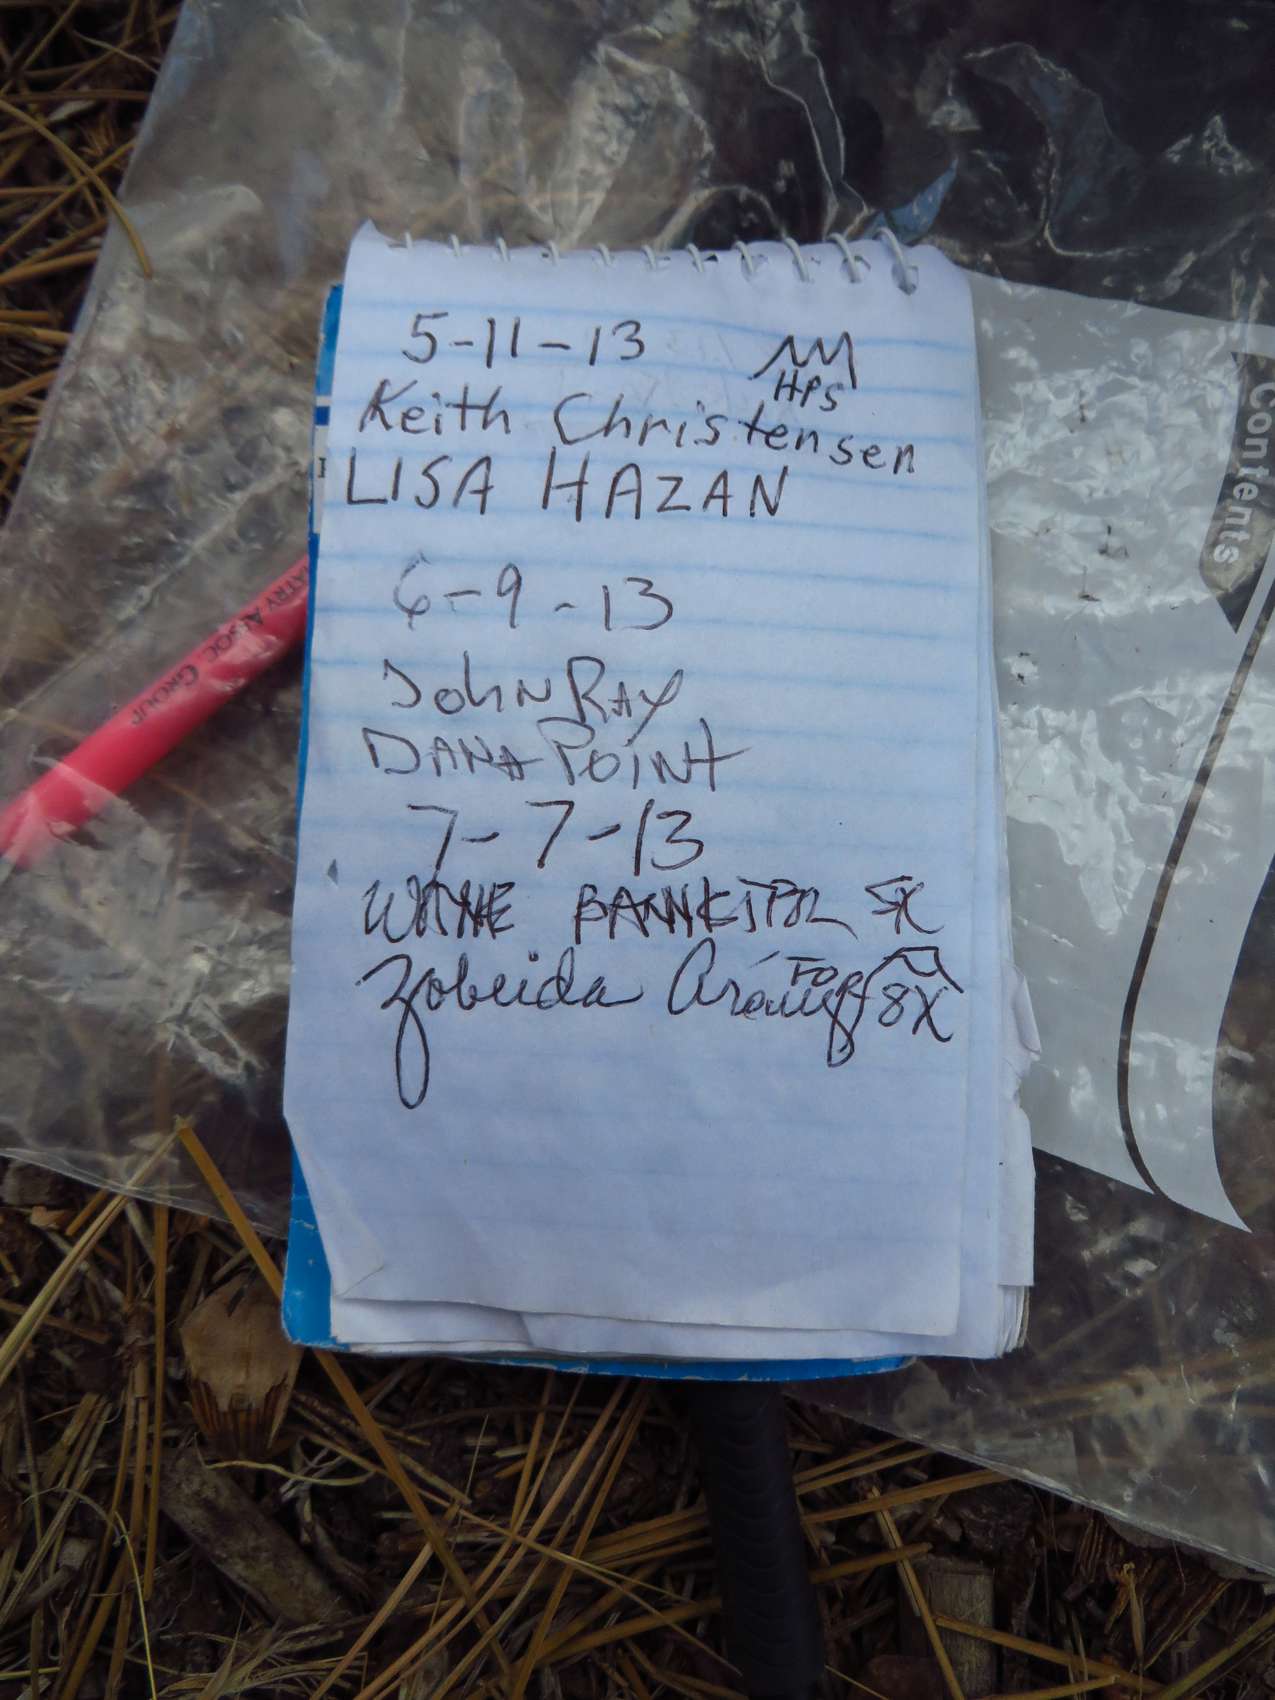 5-11-13
HPS
Keith Christensen
LISA HAZAN
6-9-13
John Ray
Dana Point
7-7-13
5X
Zobeida
8X
ATRY ASSOC GROUP
Contents